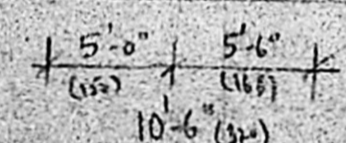 5'-0" 5'-6"
(152) (168)
10'-6" (320)